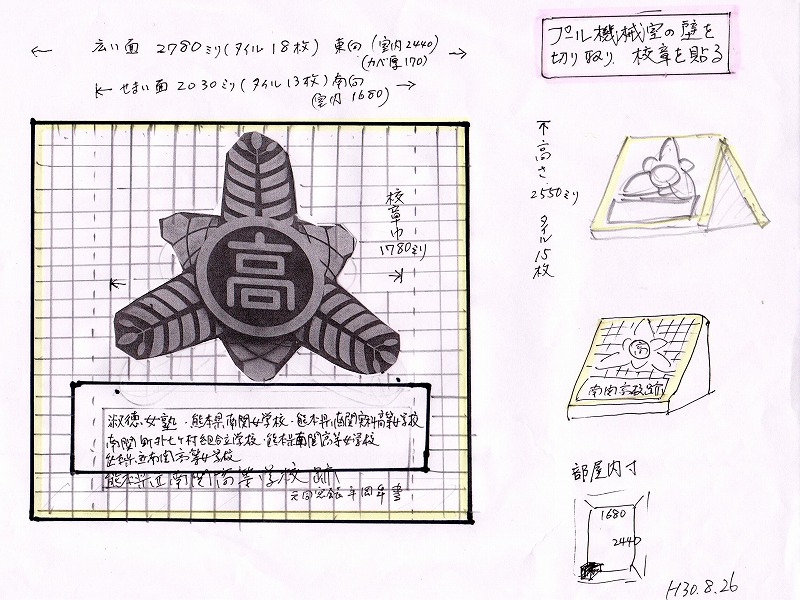 広い面 2780ミリ(タイル18枚) 東向(室内2440)
(カベ厚170)
せまい面2030ミリ(タイル13枚)南向
(室内1680)
プール機械室の壁を
切り取り 校章を貼る
高さ
2550ミリ
タイル15枚
校章巾
1780ミリ
高
淑徳女塾・熊本県南関女学校・熊本県南関実科高等女学校
南関町外七ヶ村組合立学校・熊本県南関高等女学校
熊本県立南関高等女学校
熊本県立南関高等学校跡
高
南関高校跡
部屋内寸
1680
2440
H30.8.26